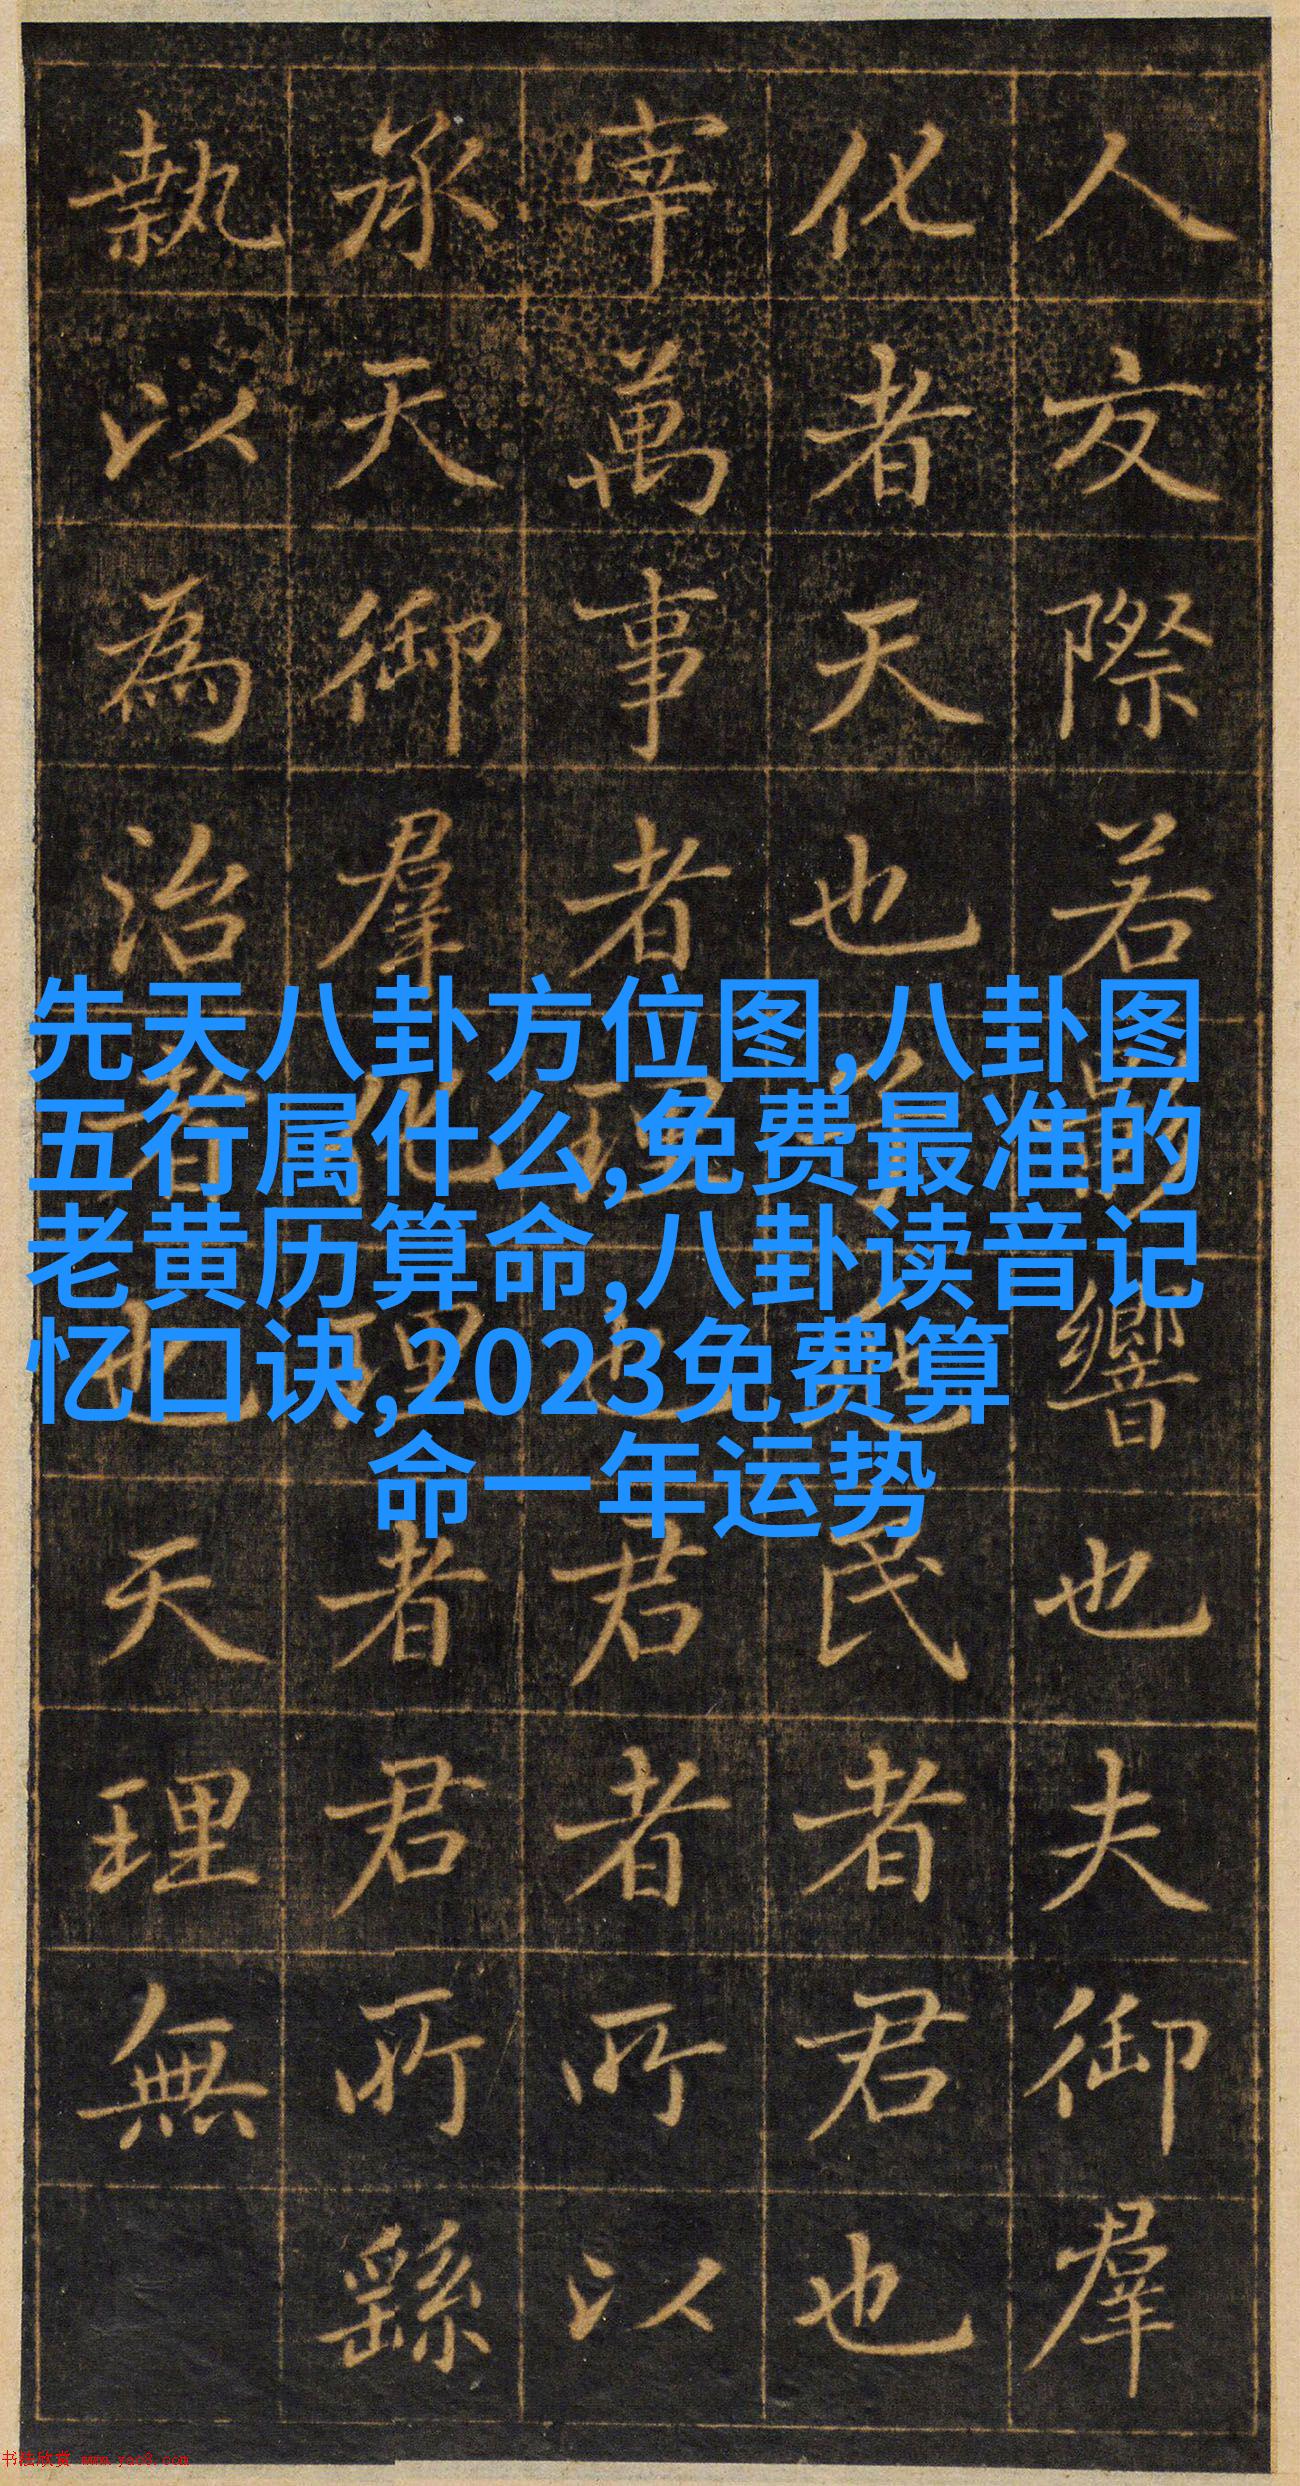 人交際若影響也夫御羣
化者天也民者君也
宰萬事者理也君者所以
承天御羣化理者君所繇
執以為治者也天理無
先天八卦方位图,八卦图
五行属什么,免费最准的
老黄历算命,八卦读音记
忆口诀,2023免费算
命一年运势
书法欣赏 www.yac8.com